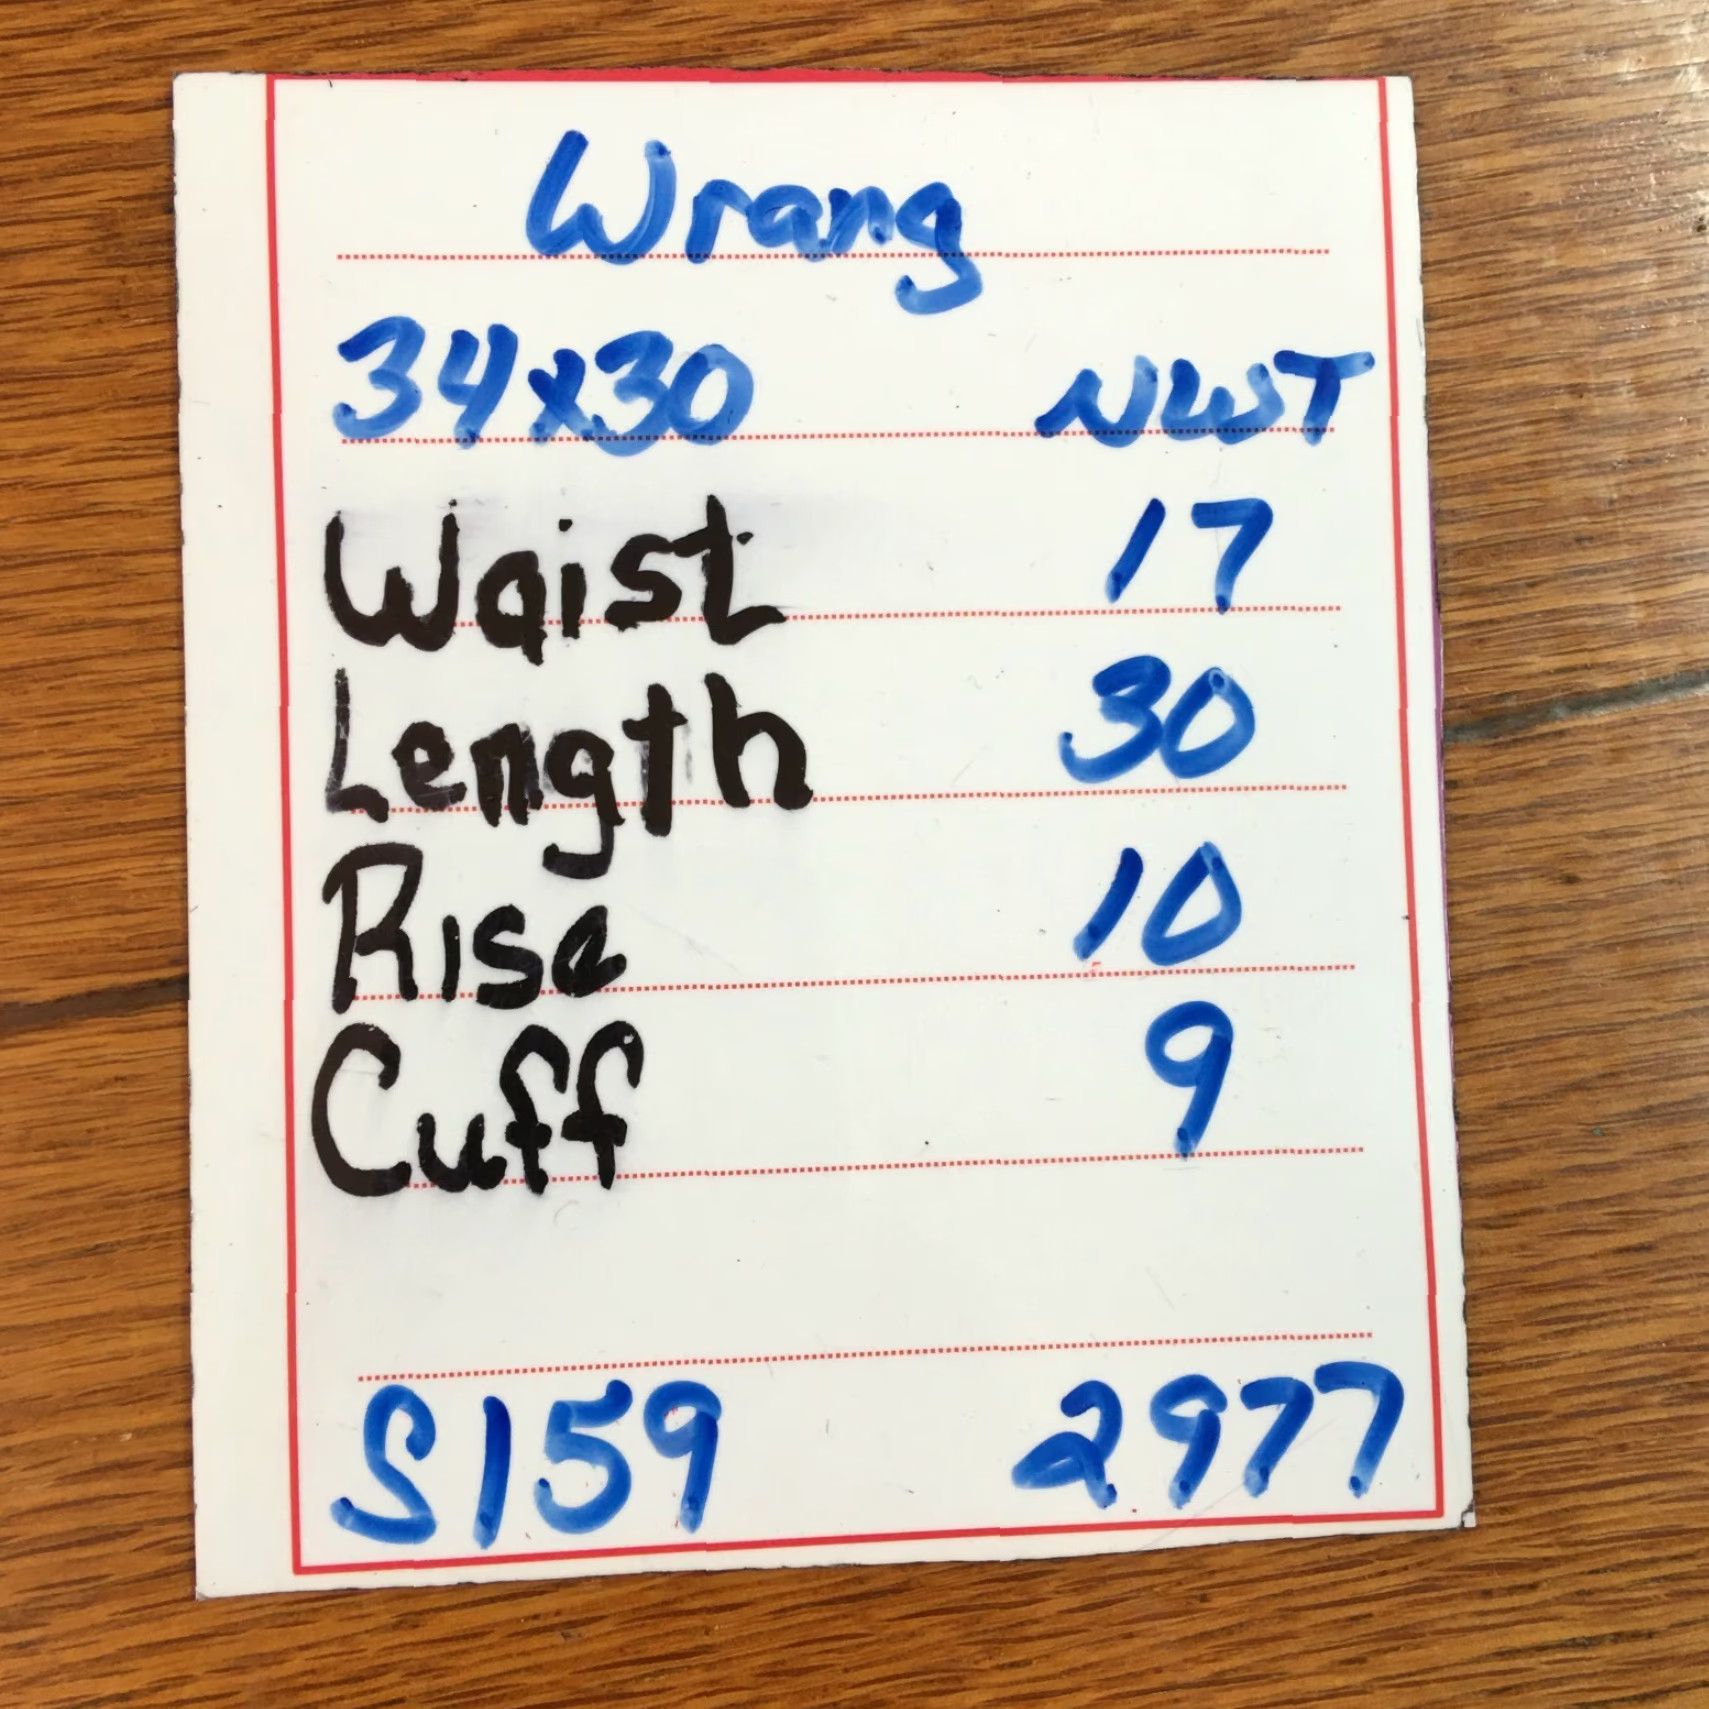 Wrang
34x30 NWT
Waist 17
Length 30
Rise 10
Cuff 9
S159 2977